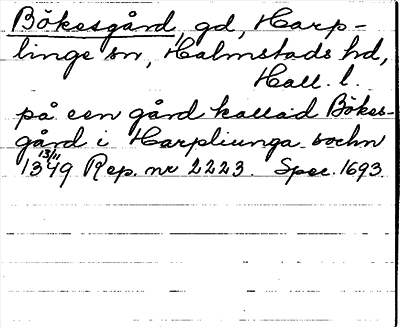 Bökesgård, gd, Harp-
linge sn, Halmstads hd,
Hall. l.
på een gård kallad Bökes-
gård i Harpliunga sochn
13/11
1349 Rep. nr 2223. Spec. 1693